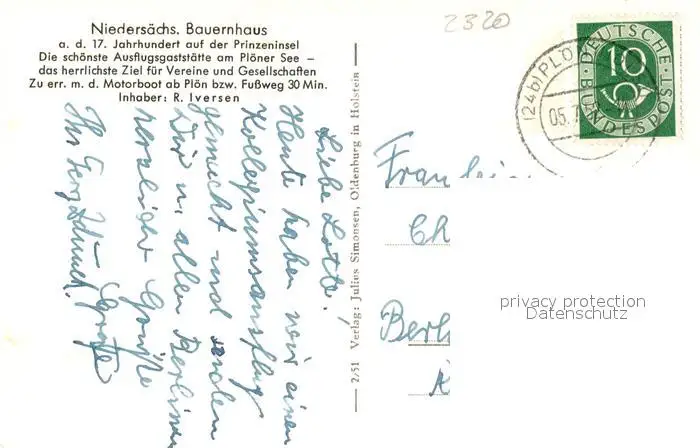 Niedersächs. Bauernhaus
a. d. 17. Jahrhundert auf der Prinzeninsel
Die schönste Ausflugsgaststätte am Plöner See —
das herrlichste Ziel für Vereine und Gesellschaften
Zu err. m. d. Motorboot ab Plön bzw. Fußweg 30 Min.
Inhaber: R. Iversen
Liebe Lotte!
Heute haben wir einen
Kollegiumsausflug
gemacht und senden
Dir u. allen Berliner
herzliche Grüße
Ihr
2/51 Verlag: Julius Simonsen, Oldenburg in Holstein
2320
(24b) PLÖ
05.7
DEUTSCHE
BUNDESPOST
10
Fräulein
Ch
Berl
privacy protection
Datenschutz